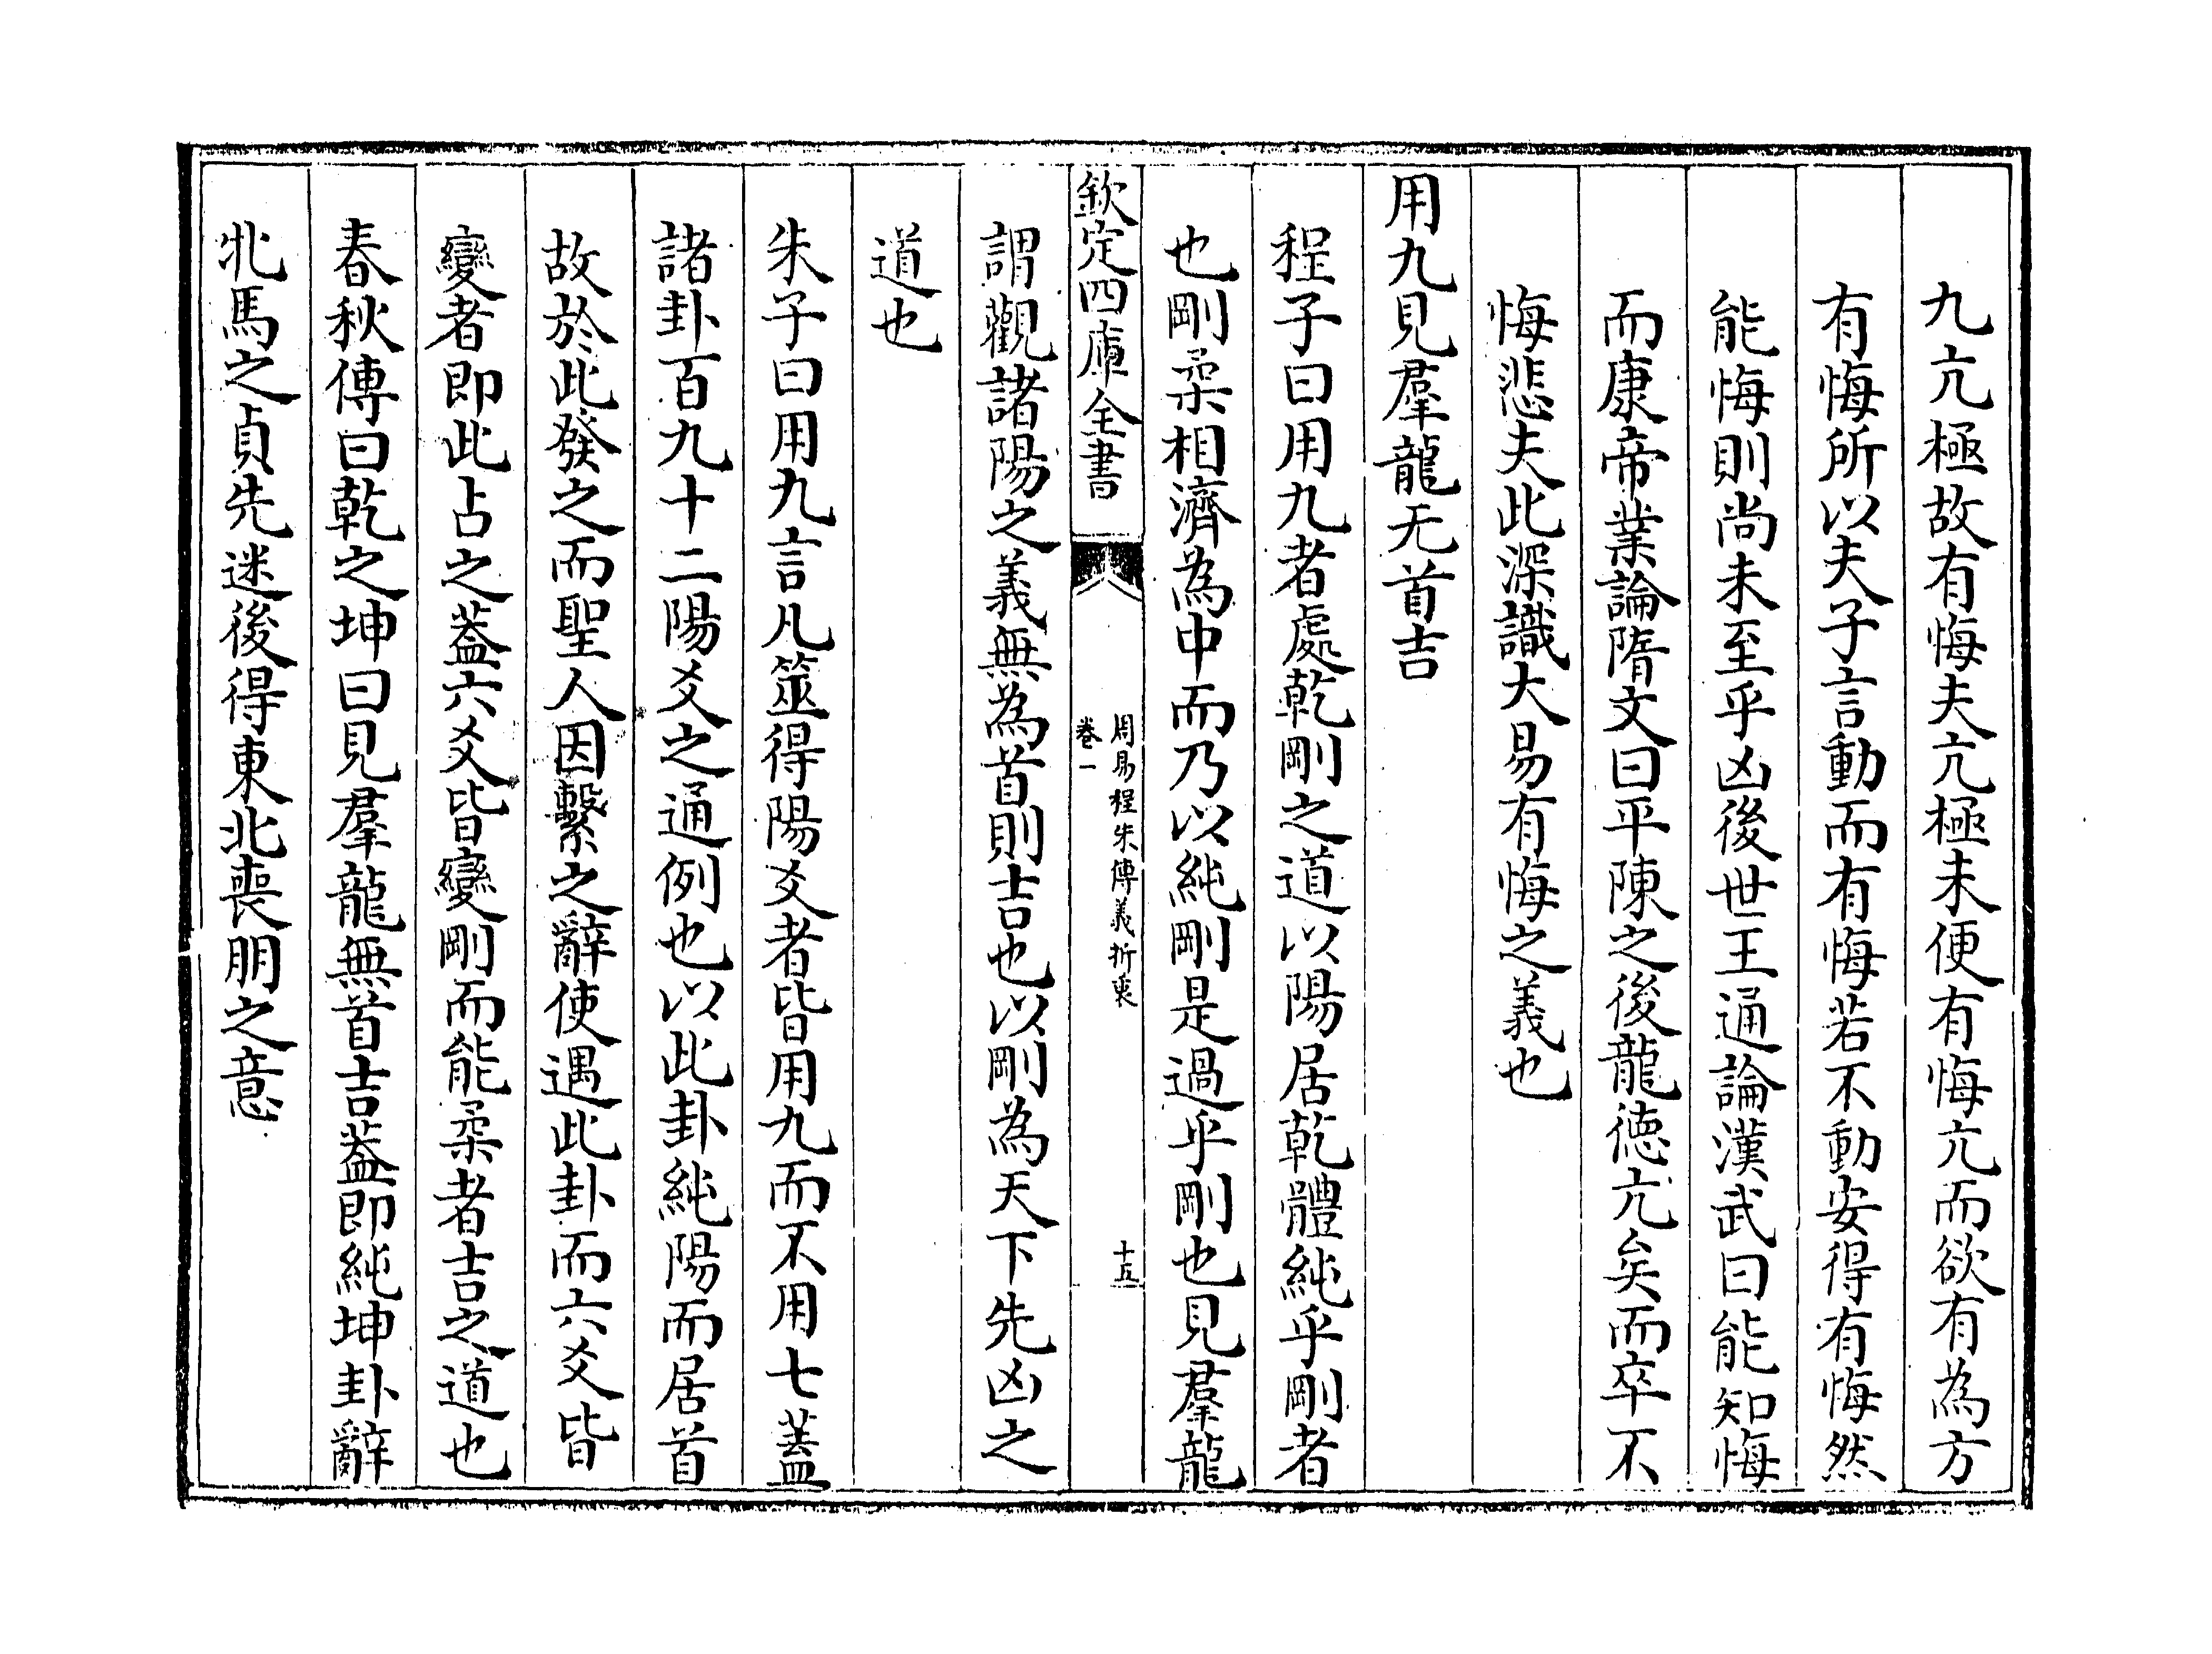 九亢極故有悔夫亢極未便有悔亢而欲有為方
有悔所以夫子言動而有悔若不動安得有悔然
能悔則尚未至乎凶後世王通論漢武曰能知悔
而康帝業論隋文曰平陳之後龍徳亢矣而卒不
悔悲夫此深識大易有悔之義也
用九見羣龍无首吉
程子曰用九者處乾剛之道以陽居乾體純乎剛者
也剛柔相濟為中而乃以純剛是過乎剛也見羣龍
欽定四庫全書
周易程朱傳義折衷
卷一
十五
謂觀諸陽之義無為首則吉也以剛為天下先凶之
道也
朱子曰用九言凡筮得陽爻者皆用九而不用七蓋
諸卦百九十二陽爻之通例也以此卦純陽而居首
故於此發之而聖人因繫之辭使遇此卦而六爻皆
變者即此占之葢六爻皆變剛而能柔者吉之道也
春秋傳曰乾之坤曰見羣龍無首吉葢即純坤卦辭
牝馬之貞先迷後得東北喪朋之意